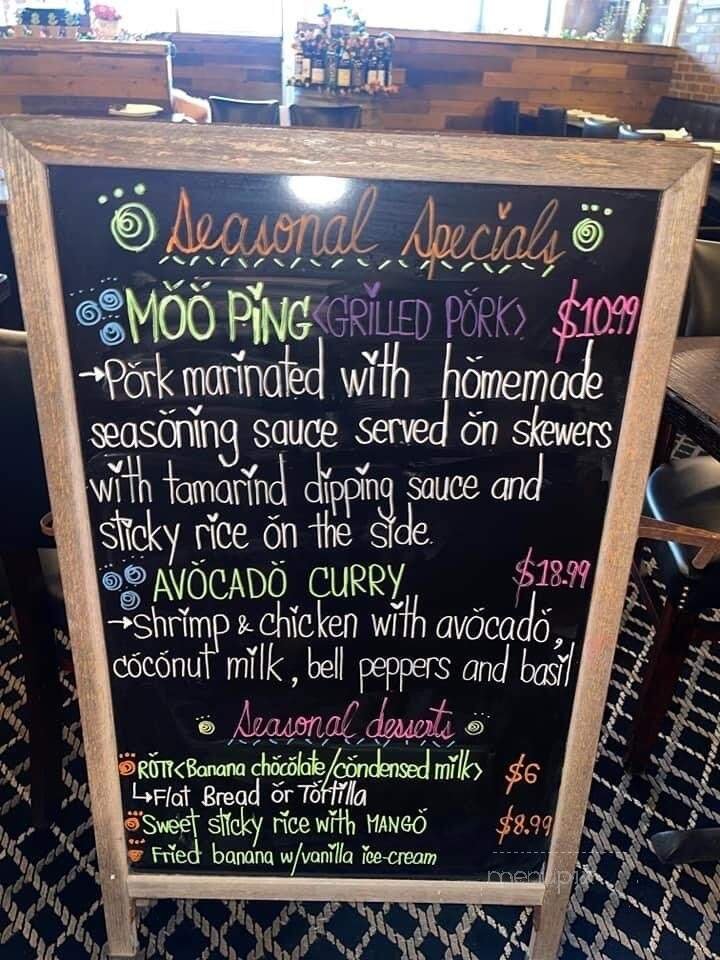 Seasonal Specials
MOO PING <GRILLED PORK> $10.99
→Pork marinated with homemade
seasoning sauce served on skewers
with tamarind dipping sauce and
sticky rice on the side.
AVOCADO CURRY $18.99
→shrimp & chicken with avocado,
coconut milk, bell peppers and basil
Seasonal desserts
ROTI <Banana chocolate/condensed milk> $6
↳Flat Bread or Tortilla
Sweet sticky rice with MANGO $8.99
Fried banana w/vanilla ice-cream